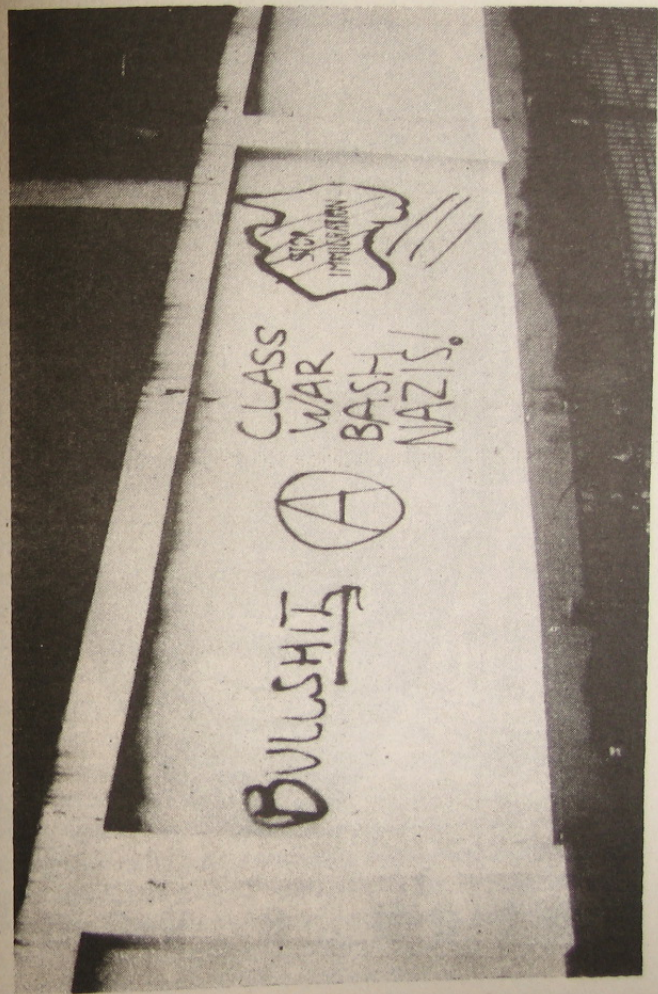 BULLSHIT
A
CLASS
WAR
BASH
NAZIS!
STOP
IMMIGRATION